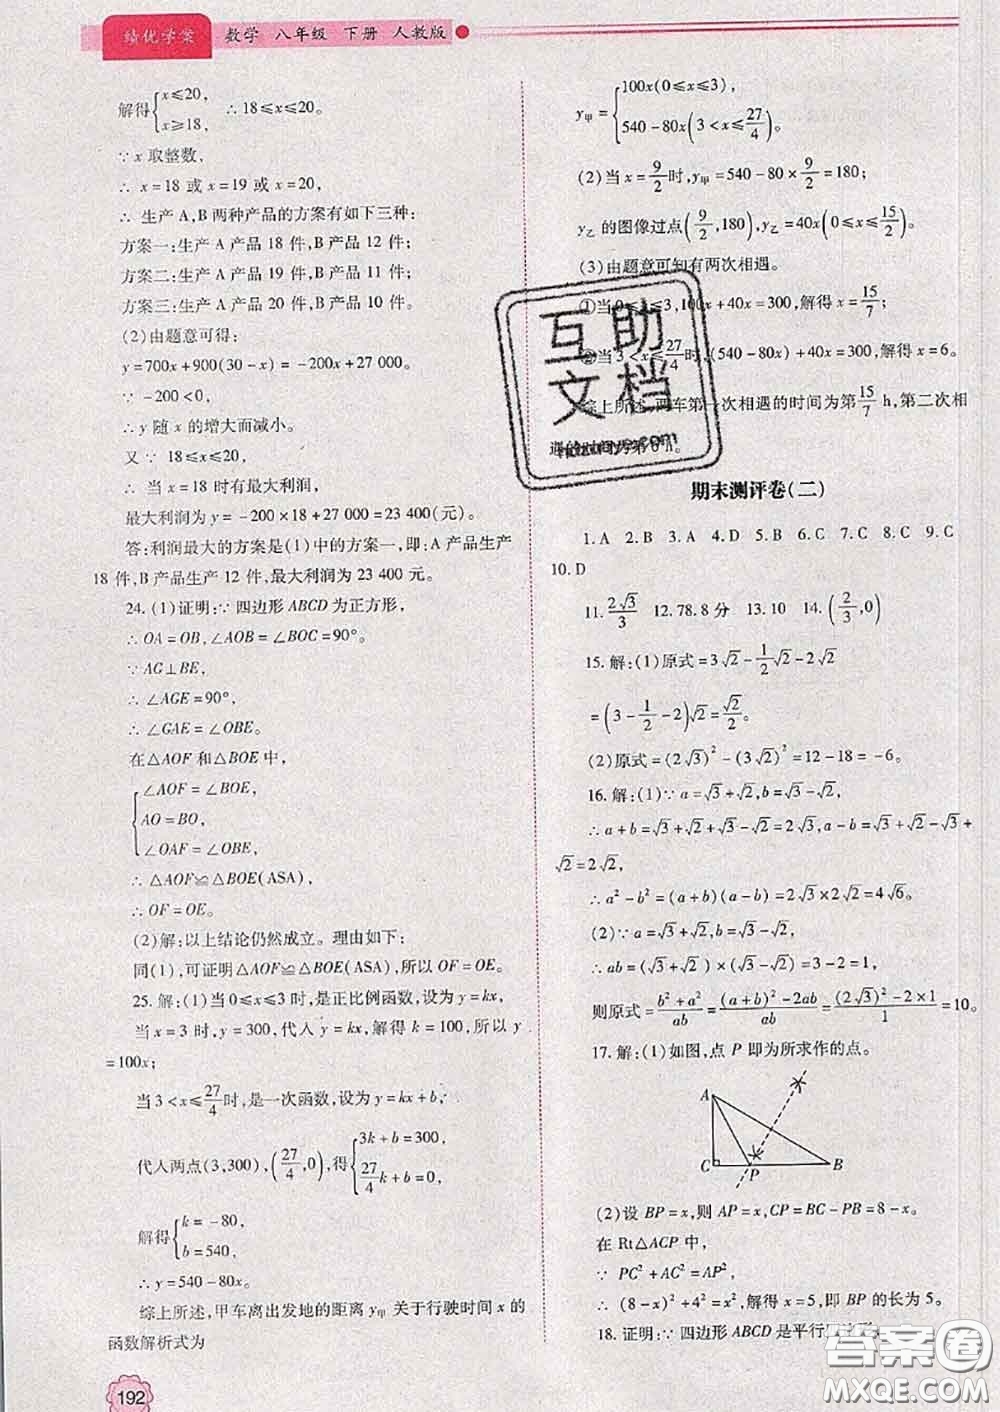 绩优学案 数学 八年级 下册 人教版
解得{x≤20, x≥18, ∴18≤x≤20。
∵x 取整数,
∴ x=18 或 x=19 或 x=20,
∴ 生产 A,B 两种产品的方案有如下三种:
方案一:生产 A 产品 18 件,B 产品 12 件;
方案二:生产 A 产品 19 件,B 产品 11 件;
方案三:生产 A 产品 20 件,B 产品 10 件。
(2)由题意可得:
y=700x+900(30-x)=-200x+27 000,
∵ -200<0,
∴y 随 x 的增大而减小。
又∵ 18≤x≤20,
∴ 当 x=18 时有最大利润,
最大利润为 y=-200×18+27 000=23 400(元)。
答:利润最大的方案是(1)中的方案一,即:A 产品生产
18 件,B 产品生产 12 件,最大利润为 23 400 元。
24. (1)证明:∵四边形 ABCD 为正方形,
∴OA=OB,∠AOB=∠BOC=90°。
∵AG⊥BE,
∴∠AGE=90°,
∴∠GAE=∠OBE。
在△AOF 和△BOE 中,
{∠AOF=∠BOE,
AO=BO,
∠OAF=∠OBE,
∴△AOF≌△BOE(ASA),
∴OF=OE。
(2)解:以上结论仍然成立。理由如下:
同(1),可证明△AOF≌△BOE(ASA),所以 OF=OE。
25. 解:(1)当 0≤x≤3 时,是正比例函数,设为 y=kx,
当 x=3 时,y=300,代入 y=kx,解得 k=100,所以 y
=100x;
当 3<x≤27/4时,是一次函数,设为 y=kx+b,
代入两点(3,300),(27/4,0),得{3k+b=300, 27/4k+b=0,
解得{k=-80, b=540,
∴y=540-80x。
综上所述,甲车离出发地的距离 y甲 关于行驶时间 x 的
函数解析式为
192
y甲={100x(0≤x≤3), 540-80x(3<x≤27/4)。
(2)当 x=9/2时,y甲=540-80×9/2=180;
y乙 的图像过点(9/2,180),y乙=40x(0≤x≤15/2)。
(3)由题意可知有两次相遇。
①当 0≤x≤3,100x+40x=300,解得 x=15/7;
②当 3<x≤27/4时,(540-80x)+40x=300,解得 x=6。
综上所述,两车第一次相遇的时间为第15/7 h,第二次相
遇的时间为第 6 h。
互助
文档
期末测评卷(二)
1. A 2. B 3. A 4. D 5. B 6. C 7. C 8. C 9. C
10. D
11. 2√3/3 12. 78.8 分 13. 10 14. (2/3,0)
15. 解:(1)原式=3√2-1/2√2-2√2
=(3-1/2-2)√2=√2/2。
(2)原式=(2√3)²-(3√2)²=12-18=-6。
16. 解:(1)∵a=√3+√2,b=√3-√2,
∴a+b=√3+√2+√3-√2=2√3,a-b=√3+√2-√3+
√2=2√2,
∴a²-b²=(a+b)(a-b)=2√3×2√2=4√6。
(2)∵a=√3+√2,b=√3-√2,
∴ab=(√3+√2)×(√3-√2)=1,
则原式=b²+a²/ab=(a+b)²-2ab/ab=(2√3)²-2×1/1=10。
17. 解:(1)如图,点 P 即为所求作的点。
A
C P B
(2)设 BP=x,则 AP=x,CP=BC-PB=8-x。
在 Rt△ACP 中,
∵ PC²+AC²=AP²,
∴ (8-x)²+4²=x²,解得 x=5,即 BP 的长为 5。
18. 证明:∵四边形 ABCD 是平行四边形,
答案圈
MXQE.COM